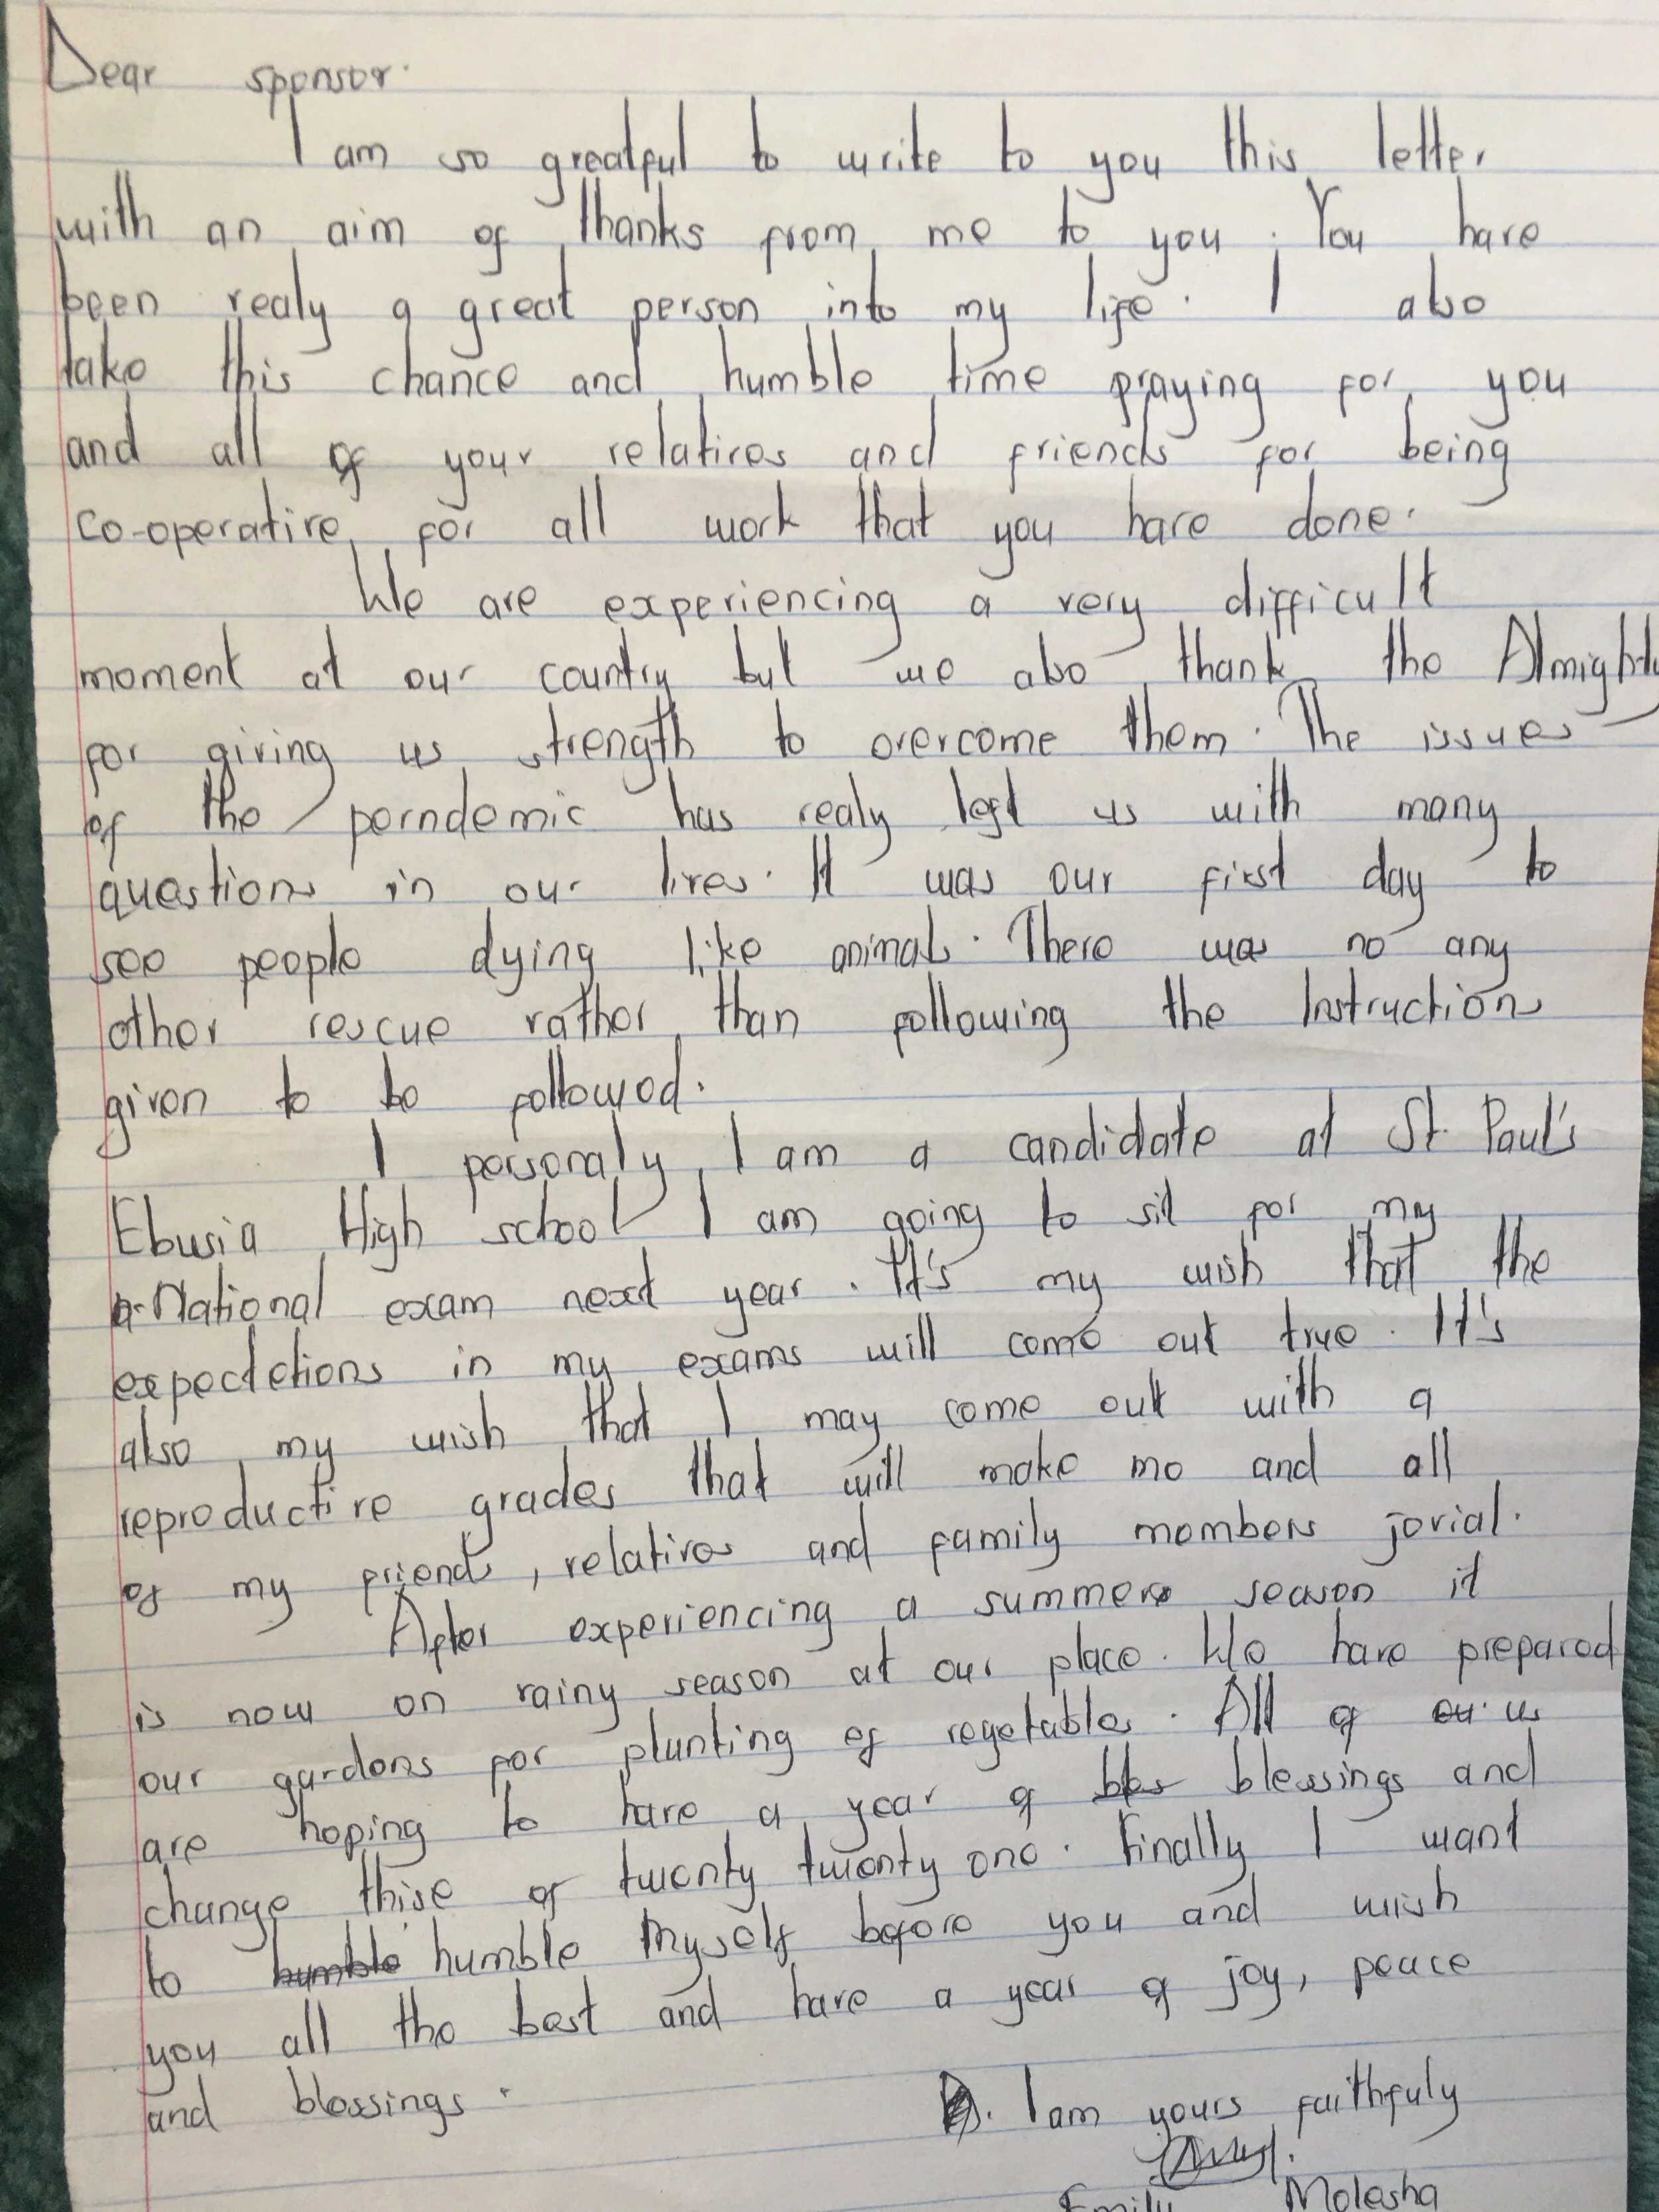 Dear sponsor.
I am so greatful to write to you this letter
with an aim of thanks from me to you. You have
been realy a great person into my life. I also
take this chance and humble time praying for you
and all of your relatives and friends for being
co-operative for all work that you have done.
We are experiencing a very difficult
moment at our country but we also thank the Almighty
for giving us strength to overcome them. The issues
of the perndemic has realy left us with many
questions in our lives. It was our first day to
see people dying like animals. There was no any
other rescue rather than following the Instructions
given to be followed.
I personaly, I am a candidate at St. Paul's
Ebusia High school I am going to sit for my
National exam next year. It's my wish that the
expectetions in my exams will come out true. It's
also my wish that I may come out with a
reproductive grades that will make me and all
of my friends, relatives and family members jovial.
After experiencing a summer season it
is now on rainy season at our place. We have prepared
our gardens for plunting of vegetables. All of us
are hoping to have a year of blessings and
change thise of twenty twenty one. Finally I want
to humble myself before you and wish
you all the best and have a year of joy, peace
and blessings.
I am yours faithfuly
Emily Molesha